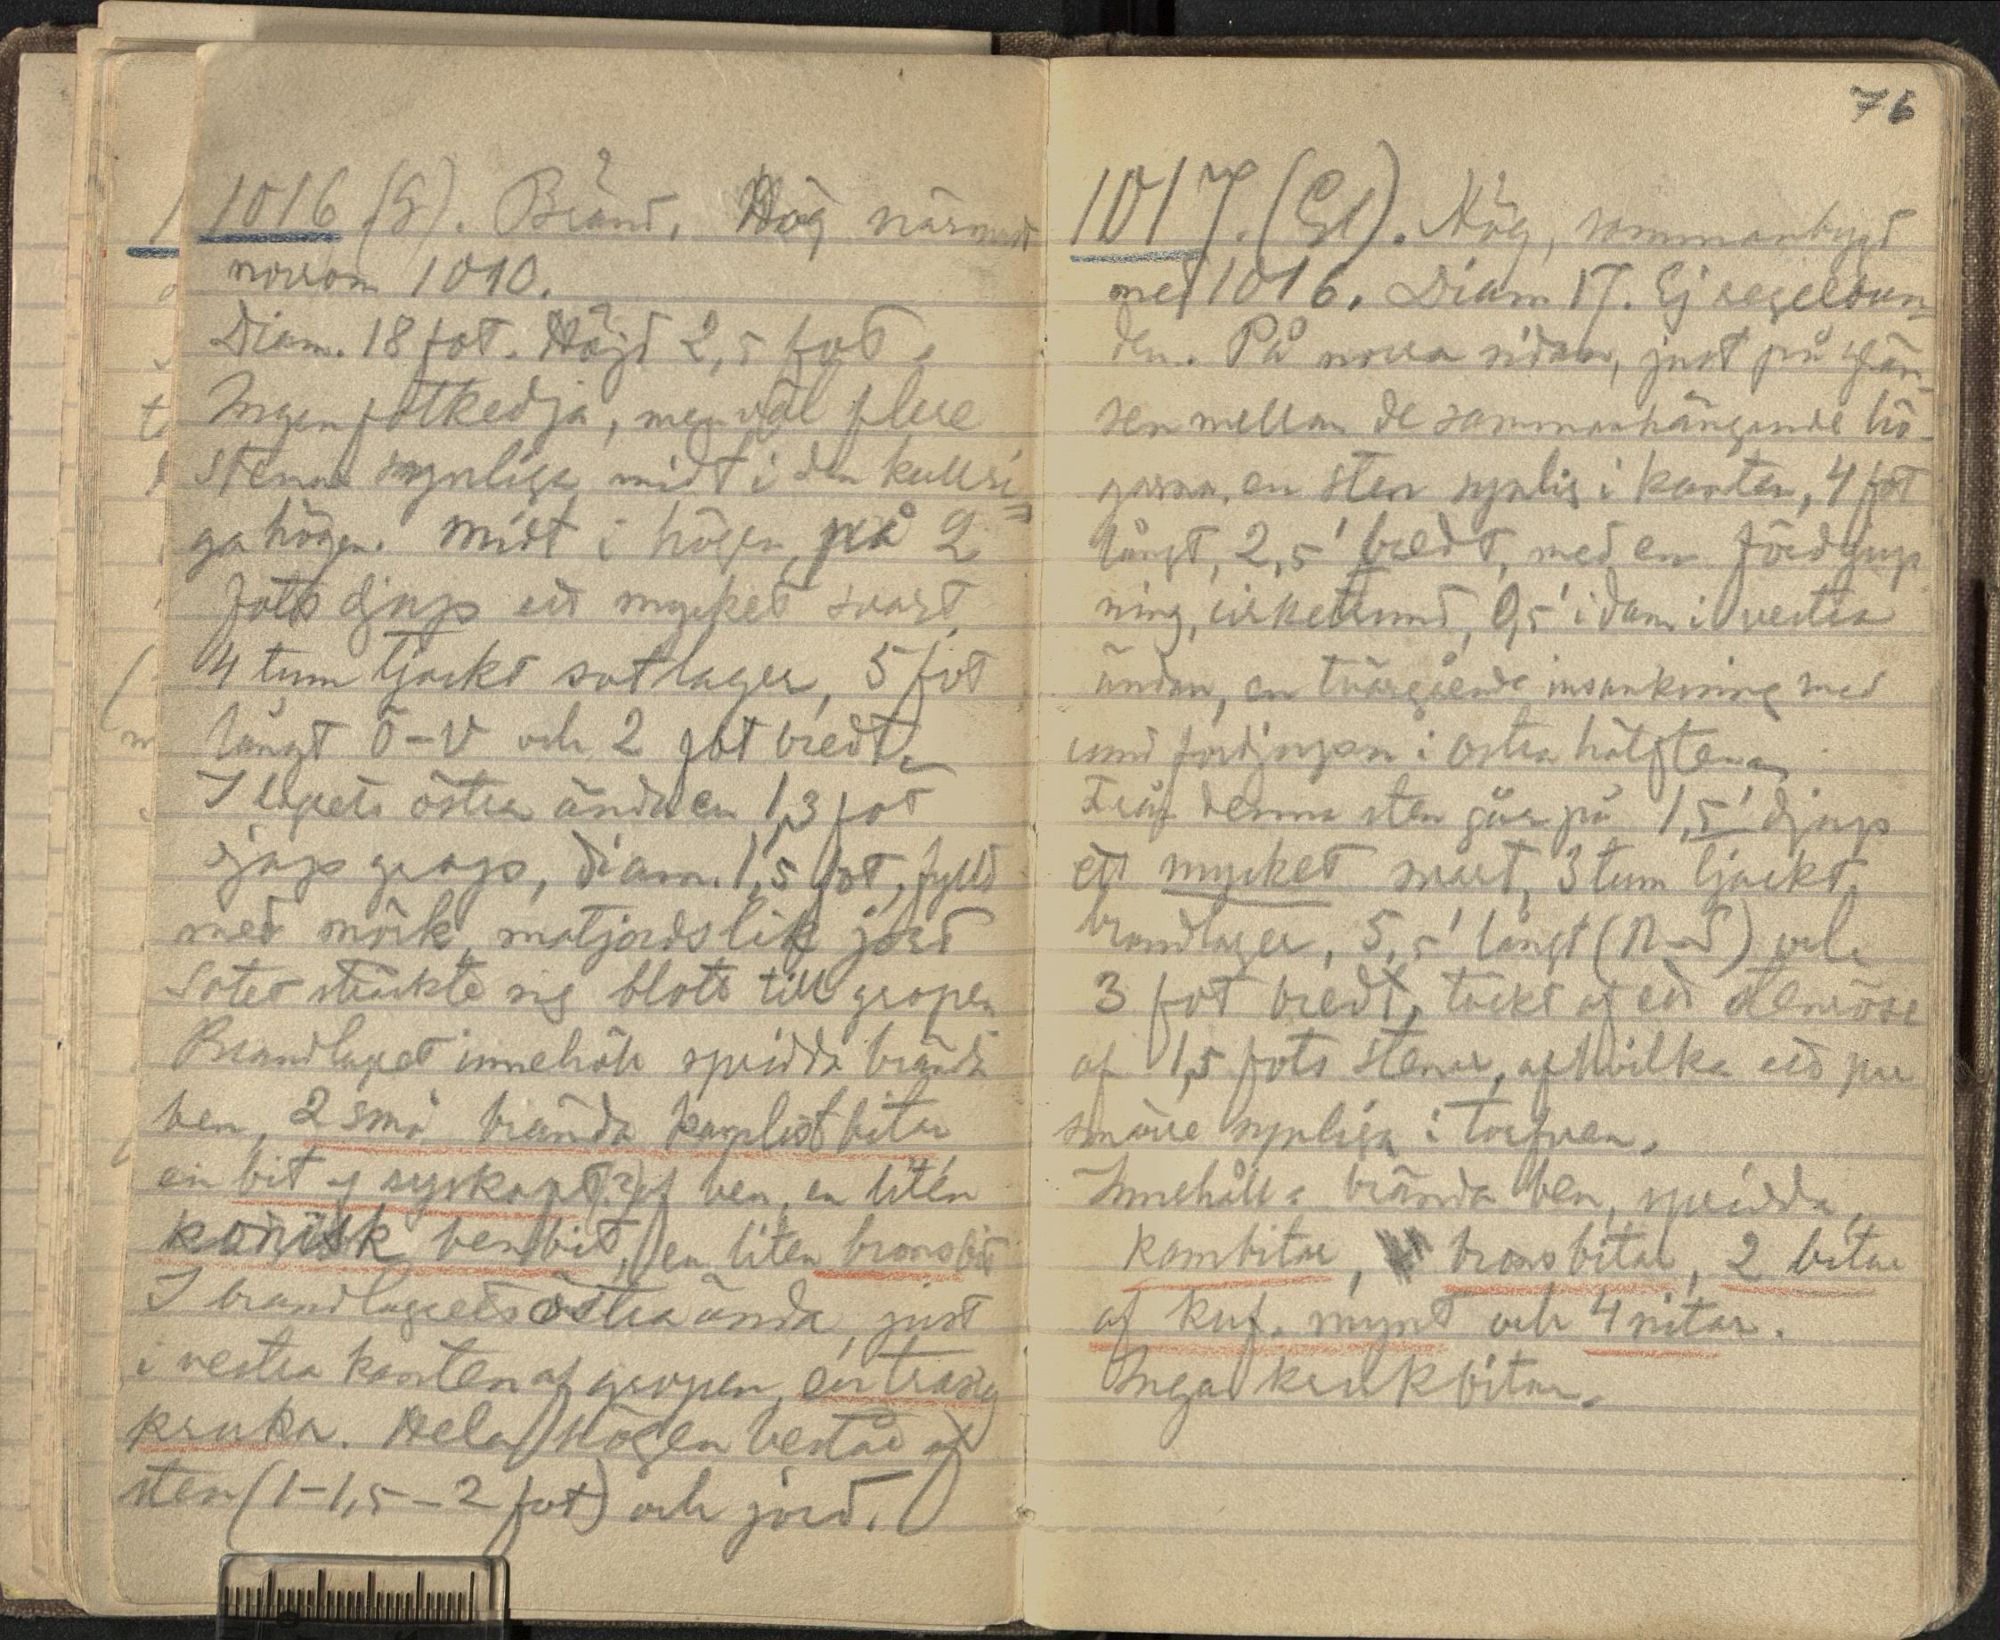 1016 (G). Bränd. Hög närmast
norrom 1010.
Diam. 18 fot. Höjd 2,5 fot.
Ingen fotkedja, men väl flere
stenar synliga midt i den kullri=
ga högen. Midt i högen, på 2
fots djup ett mycket svart,
4 tum tjockt sotlager, 5 fot
långt Ö-V och 2 fot bredt.
I lagrets östra ända en 1,3 fot
djup grop, diam. 1,5 fot, fylld
med mörk, matjordslik jord
Sotet sträckte sig blott till gropen
Brandlagret innehöll spridda brända
ben, 2 små brända kamlistbitar
en bit af syskapt(?) af ben, en liten
konisk benbit, en liten bronsbit
I brandlagrets östra ända, just
i vestra kanten af gropen, en trasig
kruka. Hela högen bestod af
sten (1-1,5-2 fot) och jord.
76
1017. (Gl). Hög, sammanbygd
med 1016. Diam 17. Ej regelbun=
den. På norra sidan, just på grän-
sen mellan de sammanhängande hö-
garna, en sten synlig i kanten, 4 fot
långt, 2,5' bredt, med en fördjup
ning, cirkelrund, 0,5' i diam i vestra
ändan, en tvärgående insänkning med
rund fördjupn i östra hälften.
Från denna sten går på 1,5' djup
ett mycket svart, 3 tum tjockt,
brandlager, 5,5' långt (N-S) och
3 fot bredt, täckt af ett stenröse
af 1,5 fots stenar, af hvilka ett par
större synliga i torfven.
Innehåll: brända ben, spridda,
kambitar, bronsbitar, 2 bitar
af kuf. mynt och 4 nitar.
Inga krukbitar.